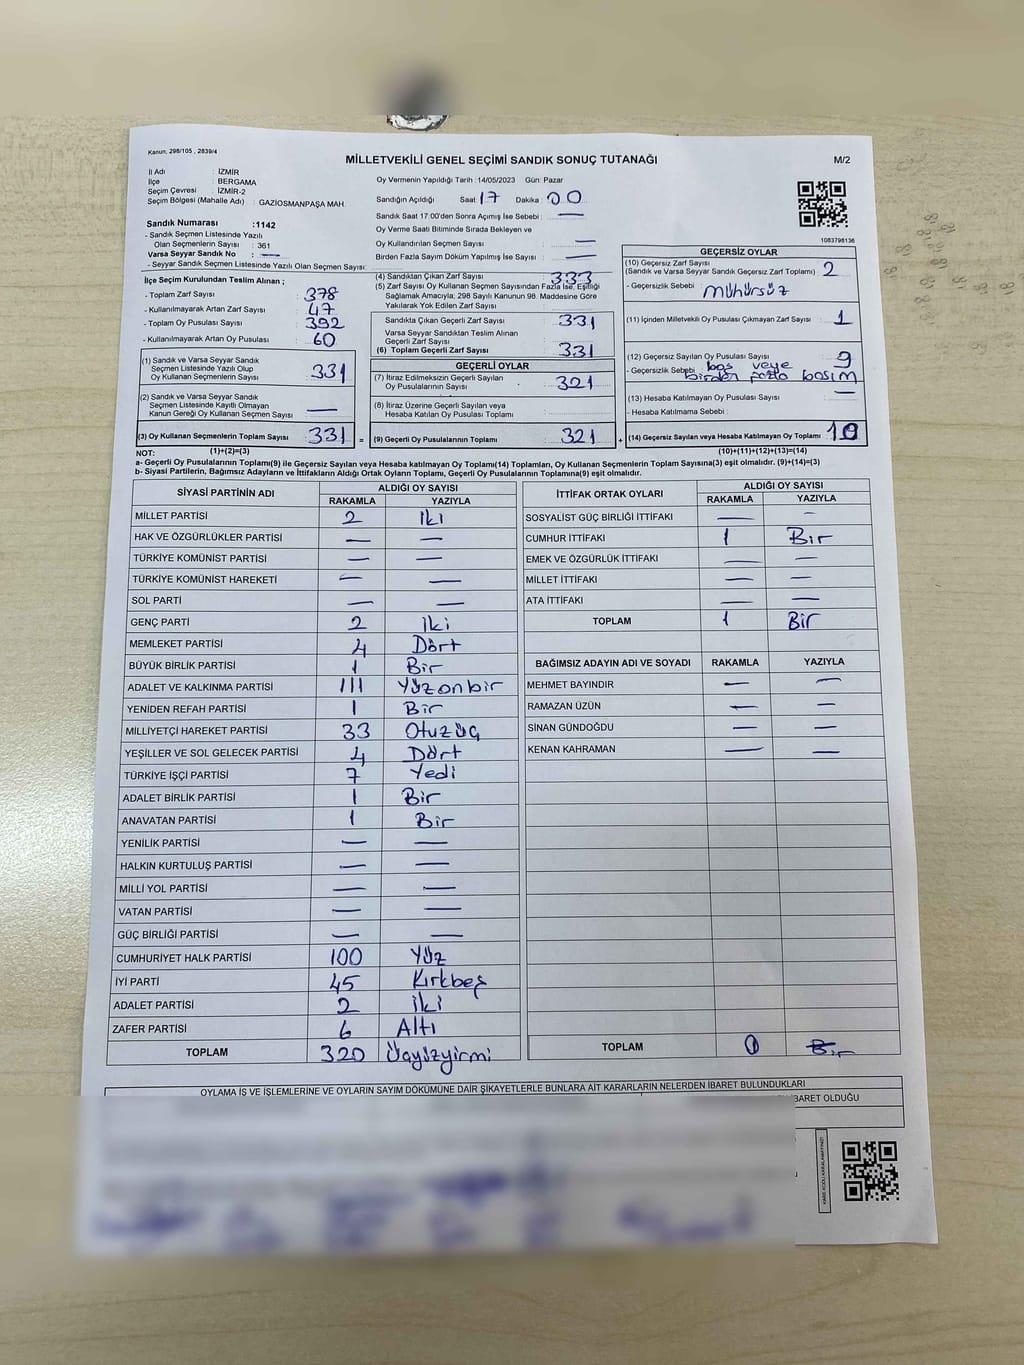 Kanun, 298/105 , 2839/4
MİLLETVEKİLİ GENEL SEÇİMİ SANDIK SONUÇ TUTANAĞI
M/2
İl Adı : İZMİR
İlçe : BERGAMA
Seçim Çevresi : İZMİR-2
Seçim Bölgesi (Mahalle Adı) : GAZİOSMANPAŞA MAH.
Sandık Numarası :1142
- Sandık Seçmen Listesinde Yazılı
Olan Seçmenlerin Sayısı : 361
Varsa Seyyar Sandık No : —
- Seyyar Sandık Seçmen Listesinde Yazılı Olan Seçmen Sayısı:
Oy Vermenin Yapıldığı Tarih : 14/05/2023 Gün: Pazar
Sandığın Açıldığı Saat : 17 Dakika : 00
Sandık Saat 17:00'den Sonra Açımış İse Sebebi : —
Oy Verme Saati Bitiminde Sırada Bekleyen ve
Oy Kullandırılan Seçmen Sayısı : —
Birden Fazla Sayım Döküm Yapılmış İse Sayısı : —
1083798136
İlçe Seçim Kurulundan Teslim Alınan ;
- Toplam Zarf Sayısı : 378
- Kullanılmayarak Artan Zarf Sayısı : 47
- Toplam Oy Pusulası Sayısı : 392
- Kullanılmayarak Artan Oy Pusulası : 60
(1) Sandık ve Varsa Seyyar Sandık
Seçmen Listesinde Yazılı Olup
Oy Kullanan Seçmenlerin Sayısı : 331
(2) Sandık ve Varsa Seyyar Sandık
Seçmen Listesinde Kayıtlı Olmayan
Kanun Gereği Oy Kullanan Seçmen Sayısı : —
(3) Oy Kullanan Seçmenlerin Toplam Sayısı : 331
(1)+(2)=(3)
(4) Sandıktan Çıkan Zarf Sayısı : 333
(5) Zarf Sayısı Oy Kullanan Seçmen Sayısından Fazla İse, Eşitliği
Sağlamak Amacıyla, 298 Sayılı Kanunun 98. Maddesine Göre
Yakılarak Yok Edilen Zarf Sayısı :
Sandıkta Çıkan Geçerli Zarf Sayısı : 331
Varsa Seyyar Sandıktan Teslim Alınan
Geçerli Zarf Sayısı :
(6) Toplam Geçerli Zarf Sayısı : 331
GEÇERLİ OYLAR
(7) İtiraz Edilmeksizin Geçerli Sayılan
Oy Pusulalarının Sayısı : 321
(8) İtiraz Üzerine Geçerli Sayılan veya
Hesaba Katılan Oy Pusulası Toplamı :
= (9) Geçerli Oy Pusulalarının Toplamı : 321
GEÇERSİZ OYLAR
(10) Geçersiz Zarf Sayısı
(Sandık ve Varsa Seyyar Sandık Geçersiz Zarf Toplamı) : 2
- Geçersizlik Sebebi : mühürsüz
(11) İçinden Milletvekili Oy Pusulası Çıkmayan Zarf Sayısı : 1
(12) Geçersiz Sayılan Oy Pusulası Sayısı : 9
- Geçersizlik Sebebi : boş veya
birden fazla basım
(13) Hesaba Katılmayan Oy Pusulası Sayısı : —
- Hesaba Katılmama Sebebi :
+ (14) Geçersiz Sayılan veya Hesaba Katılmayan Oy Toplamı : 10
(10)+(11)+(12)+(13)=(14)
NOT:
a- Geçerli Oy Pusulalarının Toplamı(9) ile Geçersiz Sayılan veya Hesaba katılmayan Oy Toplamı(14) Toplamları, Oy Kullanan Seçmenlerin Toplam Sayısına(3) eşit olmalıdır. (9)+(14)=(3)
b- Siyasi Partilerin, Bağımsız Adayların ve İttifakların Aldığı Ortak Oyların Toplamı, Geçerli Oy Pusulalarının Toplamına(9) eşit olmalıdır.
SİYASİ PARTİNİN ADI ALDIĞI OY SAYISI
RAKAMLA YAZIYLA
MİLLET PARTİSİ 2 İki
HAK VE ÖZGÜRLÜKLER PARTİSİ — —
TÜRKİYE KOMÜNİST PARTİSİ — —
TÜRKİYE KOMÜNİST HAREKETİ — —
SOL PARTİ — —
GENÇ PARTİ 2 iki
MEMLEKET PARTİSİ 4 Dört
BÜYÜK BİRLİK PARTİSİ 1 Bir
ADALET VE KALKINMA PARTİSİ 111 Yüzonbir
YENİDEN REFAH PARTİSİ 1 Bir
MİLLİYETÇİ HAREKET PARTİSİ 33 Otuzüç
YEŞİLLER VE SOL GELECEK PARTİSİ 4 Dört
TÜRKİYE İŞÇİ PARTİSİ 7 Yedi
ADALET BİRLİK PARTİSİ 1 Bir
ANAVATAN PARTİSİ 1 Bir
YENİLİK PARTİSİ — —
HALKIN KURTULUŞ PARTİSİ — —
MİLLİ YOL PARTİSİ — —
VATAN PARTİSİ — —
GÜÇ BİRLİĞİ PARTİSİ — —
CUMHURİYET HALK PARTİSİ 100 Yüz
İYİ PARTİ 45 Kırkbeş
ADALET PARTİSİ 2 iki
ZAFER PARTİSİ 6 Altı
TOPLAM 320 Üçyüzyirmi
İTTİFAK ORTAK OYLARI ALDIĞI OY SAYISI
RAKAMLA YAZIYLA
SOSYALİST GÜÇ BİRLİĞİ İTTİFAKI — —
CUMHUR İTTİFAKI 1 Bir
EMEK VE ÖZGÜRLÜK İTTİFAKI — —
MİLLET İTTİFAKI — —
ATA İTTİFAKI — —
TOPLAM 1 Bir
BAĞIMSIZ ADAYIN ADI VE SOYADI RAKAMLA YAZIYLA
MEHMET BAYINDIR — —
RAMAZAN ÜZÜN — —
SİNAN GÜNDOĞDU — —
KENAN KAHRAMAN — —
TOPLAM 0 Bir
OYLAMA İŞ VE İŞLEMLERİNE VE OYLARIN SAYIM DÖKÜMÜNE DAİR ŞİKAYETLERLE BUNLARA AİT KARARLARIN NELERDEN İBARET BULUNDUKLARI
BARET OLDUĞU